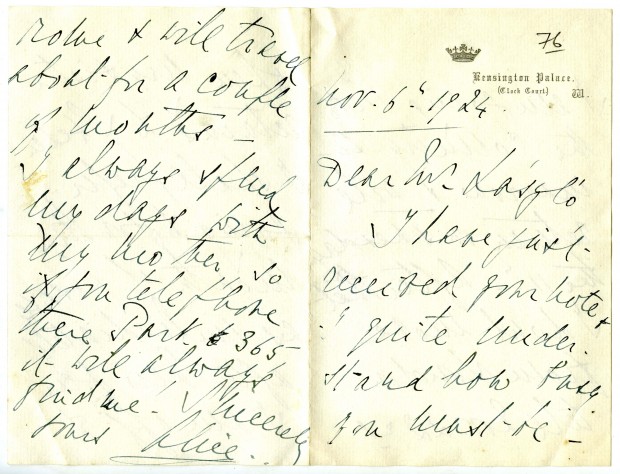 76
Kensington Palace.
(Clock Court) W.
Nov. 6th 1924.
Dear Mr László
I have just
received your note &
I quite under-
stand how busy
you must be –
Rome & will travel
about for a couple
of months –
I always spend
my days with
my mother so
if you telephone
there Park 365
it will always
find me! Sincerely
yours Alice.